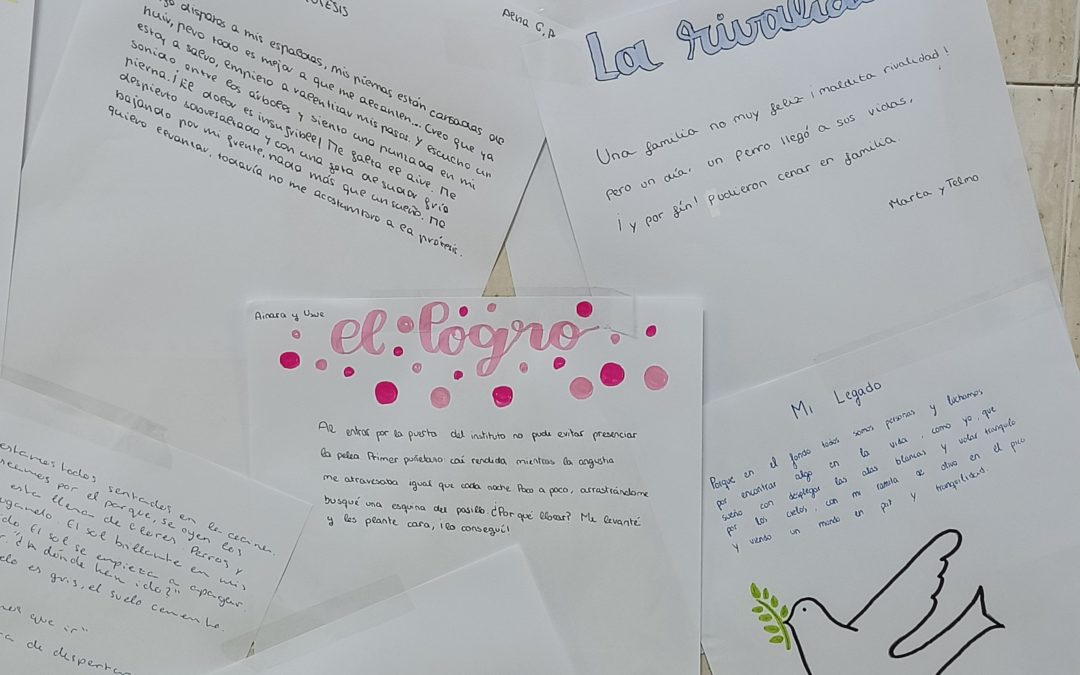 Aena G.A
disparos a mis espaldas, mis piernas están cansadas de
huir, pero todo es mejor a que me alcancen... Creo que ya
estoy a salvo, empiezo a ralentizar mis pasos, y escucho un
sonido entre los árboles y siento una puntada en mi
pierna. ¡El dolor es insufrible! Me falta el aire. Me
despierto sobresaltada y con una gota de sudor frío
bajando por mi frente, nada más que un sueño. Me
quiero levantar, todavía no me acostumbro a la prótesis.
La rivalidad
Una familia no muy feliz ¡maldita rivalidad!
pero un día, un perro llegó a sus vidas,
¡y por fin! pudieron cenar en familia.
Marta y Telmo
Ainara y Uwe
el logro
Al entrar por la puerta del instituto no pude evitar presenciar
la pelea. Primer puñetazo: caí rendida mientras la angustia
me atravesaba igual que cada noche. Poco a poco, arrastrándome
busqué una esquina del pasillo. ¿Por qué llorar? Me levanté
y les plante cara, ¡lo conseguí!
Mi Legado
Porque en el fondo todos somos personas y luchamos
por encontrar algo en la vida, como yo, que
sueño con desplegar las alas blancas y volar tranquilo
por los cielos, con mi ramita de olivo en el pico
y viendo un mundo en paz y tranquilidad.
estamos todos sentados en la cocina.
por el parque, se oyen los
esta llena de flores. Perros y
jugando. El sol brillante en mis
El sol se empieza a apagar.
¿A dónde han ido?"
es gris, el suelo cemento.
que ir"
de despertar